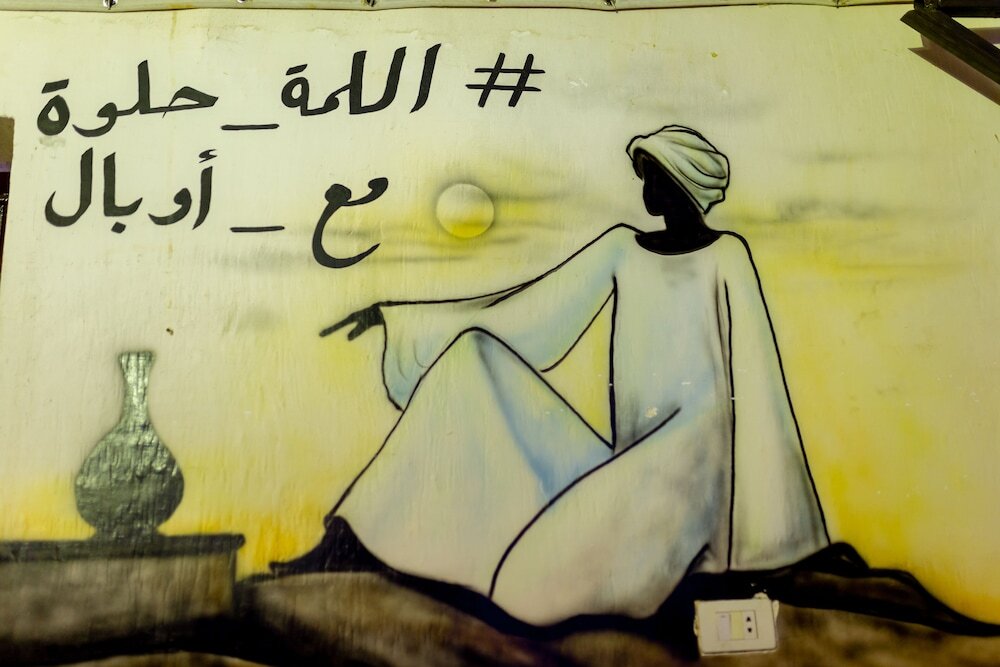 # اللمة_حلوة
مع_أوبال